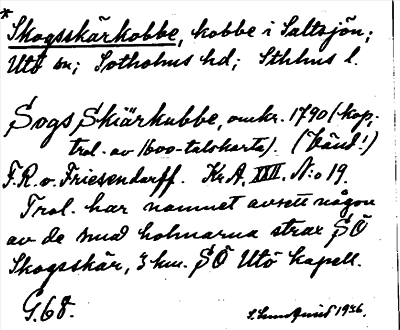 *
Skogsskärkobbe, kobbe i Saltsjön;
Utö sn; Sotholms hd; Sthlms l.
Sogs Skiärkubbe, omkr. 1790 (kop.
trol. av 1600-talskarta). (Känd!)
F.R. v. Friesendorff. Kr.A. XVII. N:o 19.
Trol. har namnet avsett någon
av de små holmarna strax SÖ
Skogsskär, 3 km. SÖ Utö kapell.
G.68.
1936.